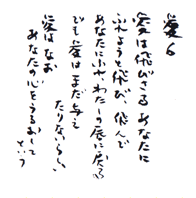 愛6
愛は飛びさる あなたに
ふれようと飛び、飛んで
あなたにふれ、わたしの唇に戻る
でも愛はまだ与え
たりないらしい、
愛はなお
あなたの心をうるおして
という